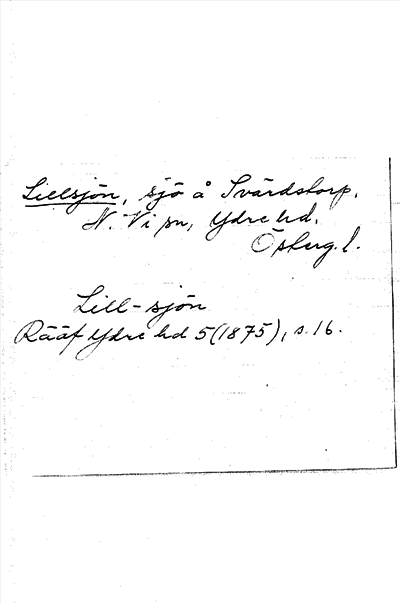 Lillsjön, sjö å Svärdstorp,
N. Vi sn, Ydre hd.
Österg. l.
Lill-sjön
Rääf Ydre hd 5(1875), s. 16.